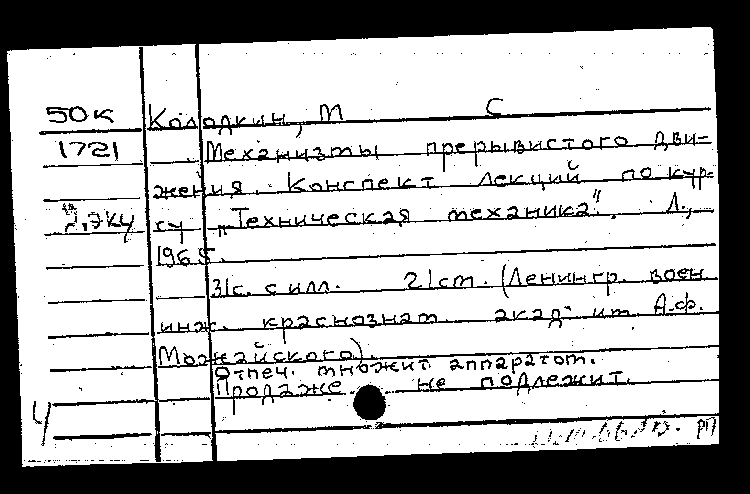 50к Колодкин, М С
1721 Механизмы прерывистого дви-
жения. Конспект лекций по кур-
2,экз су „Техническая механика". Л.,
1965.
31с. с илл. 21см. (Ленингр. воен
инж. краснознам. акад. им. А.Ф.
Можайского).
Отпеч. множит. аппаратом.
Продаже не подлежит.
Ч
РП